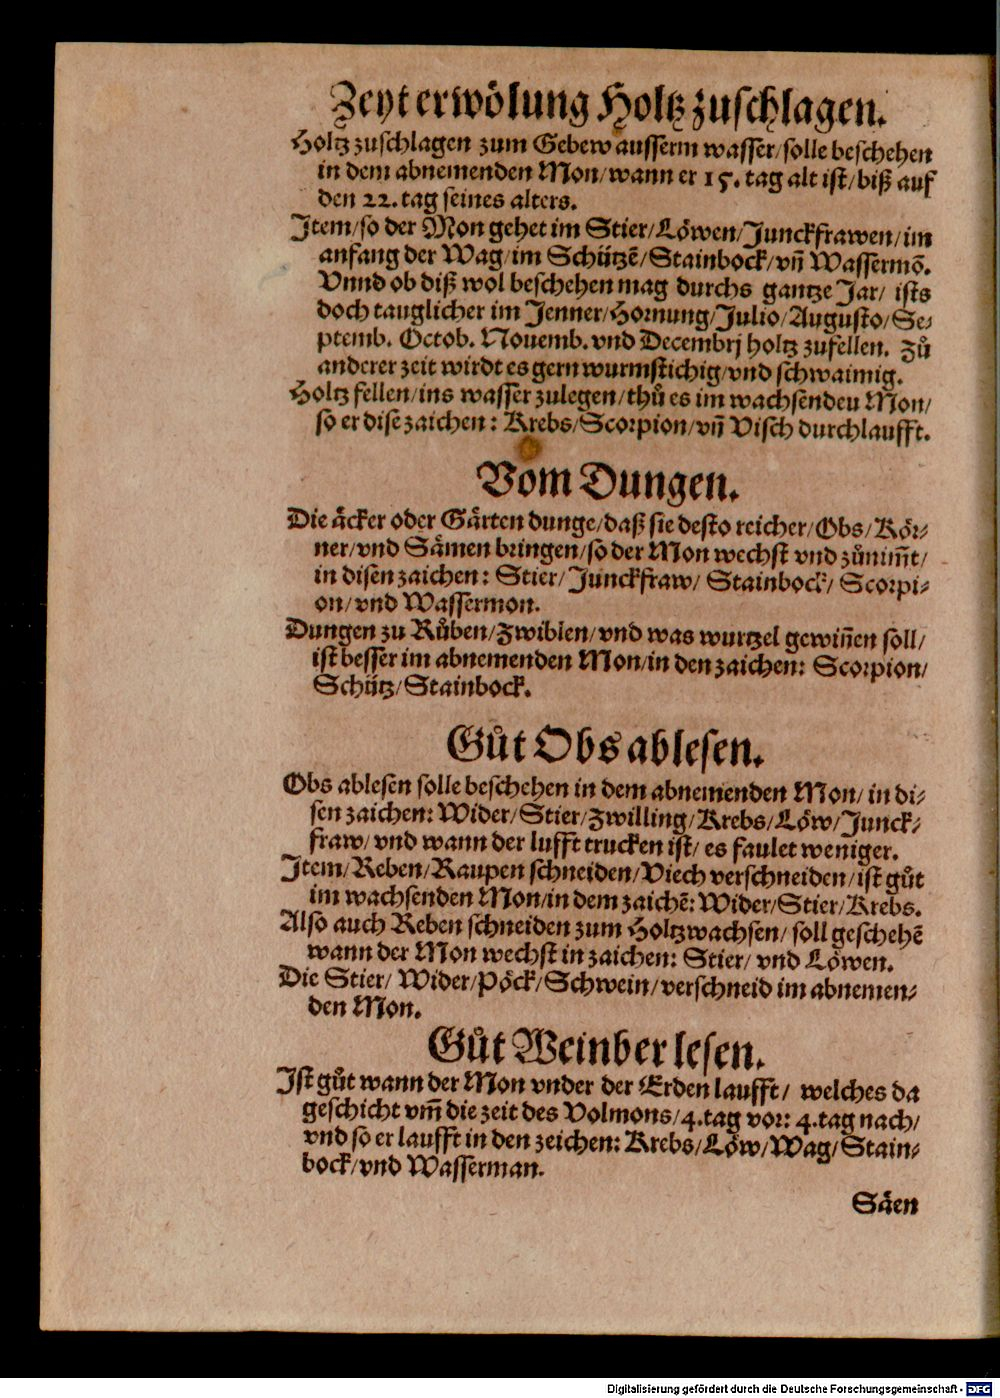 Zeyt erwölung Holtz zuschlagen.
Holtz zuschlagen zum Gebew ausserm wasser/solle beschehen
in dem abnemenden Mon/wann er 15. tag alt ist/biß auf
den 22. tag seines alters.
Item/so der Mon gehet im Stier/Löwen/Junckfrawen/im
anfang der Wag/im Schützē/Stainbock/vn̄ Wassermō.
Vnnd ob diß wol beschehen mag durchs gantze Jar/ ists
doch tauglicher im Jenner/Hornung/Julio/Augusto/Se⸗
ptemb. Octob. Nouemb. vnd Decembrj holtz zufellen. Zů
anderer zeit wirdt es gern wurmstichig/vnd schwaimig.
Holtz fellen/ins wasser zulegen/thů es im wachsenden Mon/
so er dise zaichen: Krebs/Scorpion/vn̄ Visch durchlaufft.
Vom Dungen.
Die äcker oder Gärten dunge/daß sie desto reicher/Obs/Kör⸗
ner/vnd Sämen bringen/so der Mon wechst vnd zůnim̄t/
in disen zaichen: Stier/ Junckfraw/ Stainbock/ Scorpi⸗
on/vnd Wassermon.
Dungen zu Růben/Zwiblen/vnd was wurtzel gewin̄en soll/
ist besser im abnemenden Mon/in den zaichen: Scorpion/
Schütz/Stainbock.
Gůt Obs ablesen.
Obs ablesen solle beschehen in dem abnemenden Mon/ in di⸗
sen zaichen: Wider/Stier/Zwilling/Krebs/Löw/Junck⸗
fraw/ vnd wann der lufft trucken ist/ es faulet weniger.
Item/Reben/Raupen schneiden/Viech verschneiden/ist gůt
im wachsenden Mon/in dem zaichē: Wider/Stier/Krebs.
Also auch Reben schneiden zum Holtzwachsen/ soll geschehē
wann der Mon wechst in zaichen: Stier/ vnd Löwen.
Die Stier/ Wider/Pöck/Schwein/verschneid im abnemen⸗
den Mon.
Gůt Weinber lesen.
Ist gůt wann der Mon vnder der Erden laufft/ welches da
geschicht vm̄ die zeit des Volmons/4.tag vor: 4.tag nach/
vnd so er laufft in den zeichen: Krebs/Löw/Wag/Stain⸗
bock/vnd Wasserman.
Säen
Digitalisierung gefördert durch die Deutsche Forschungsgemeinschaft - DFG